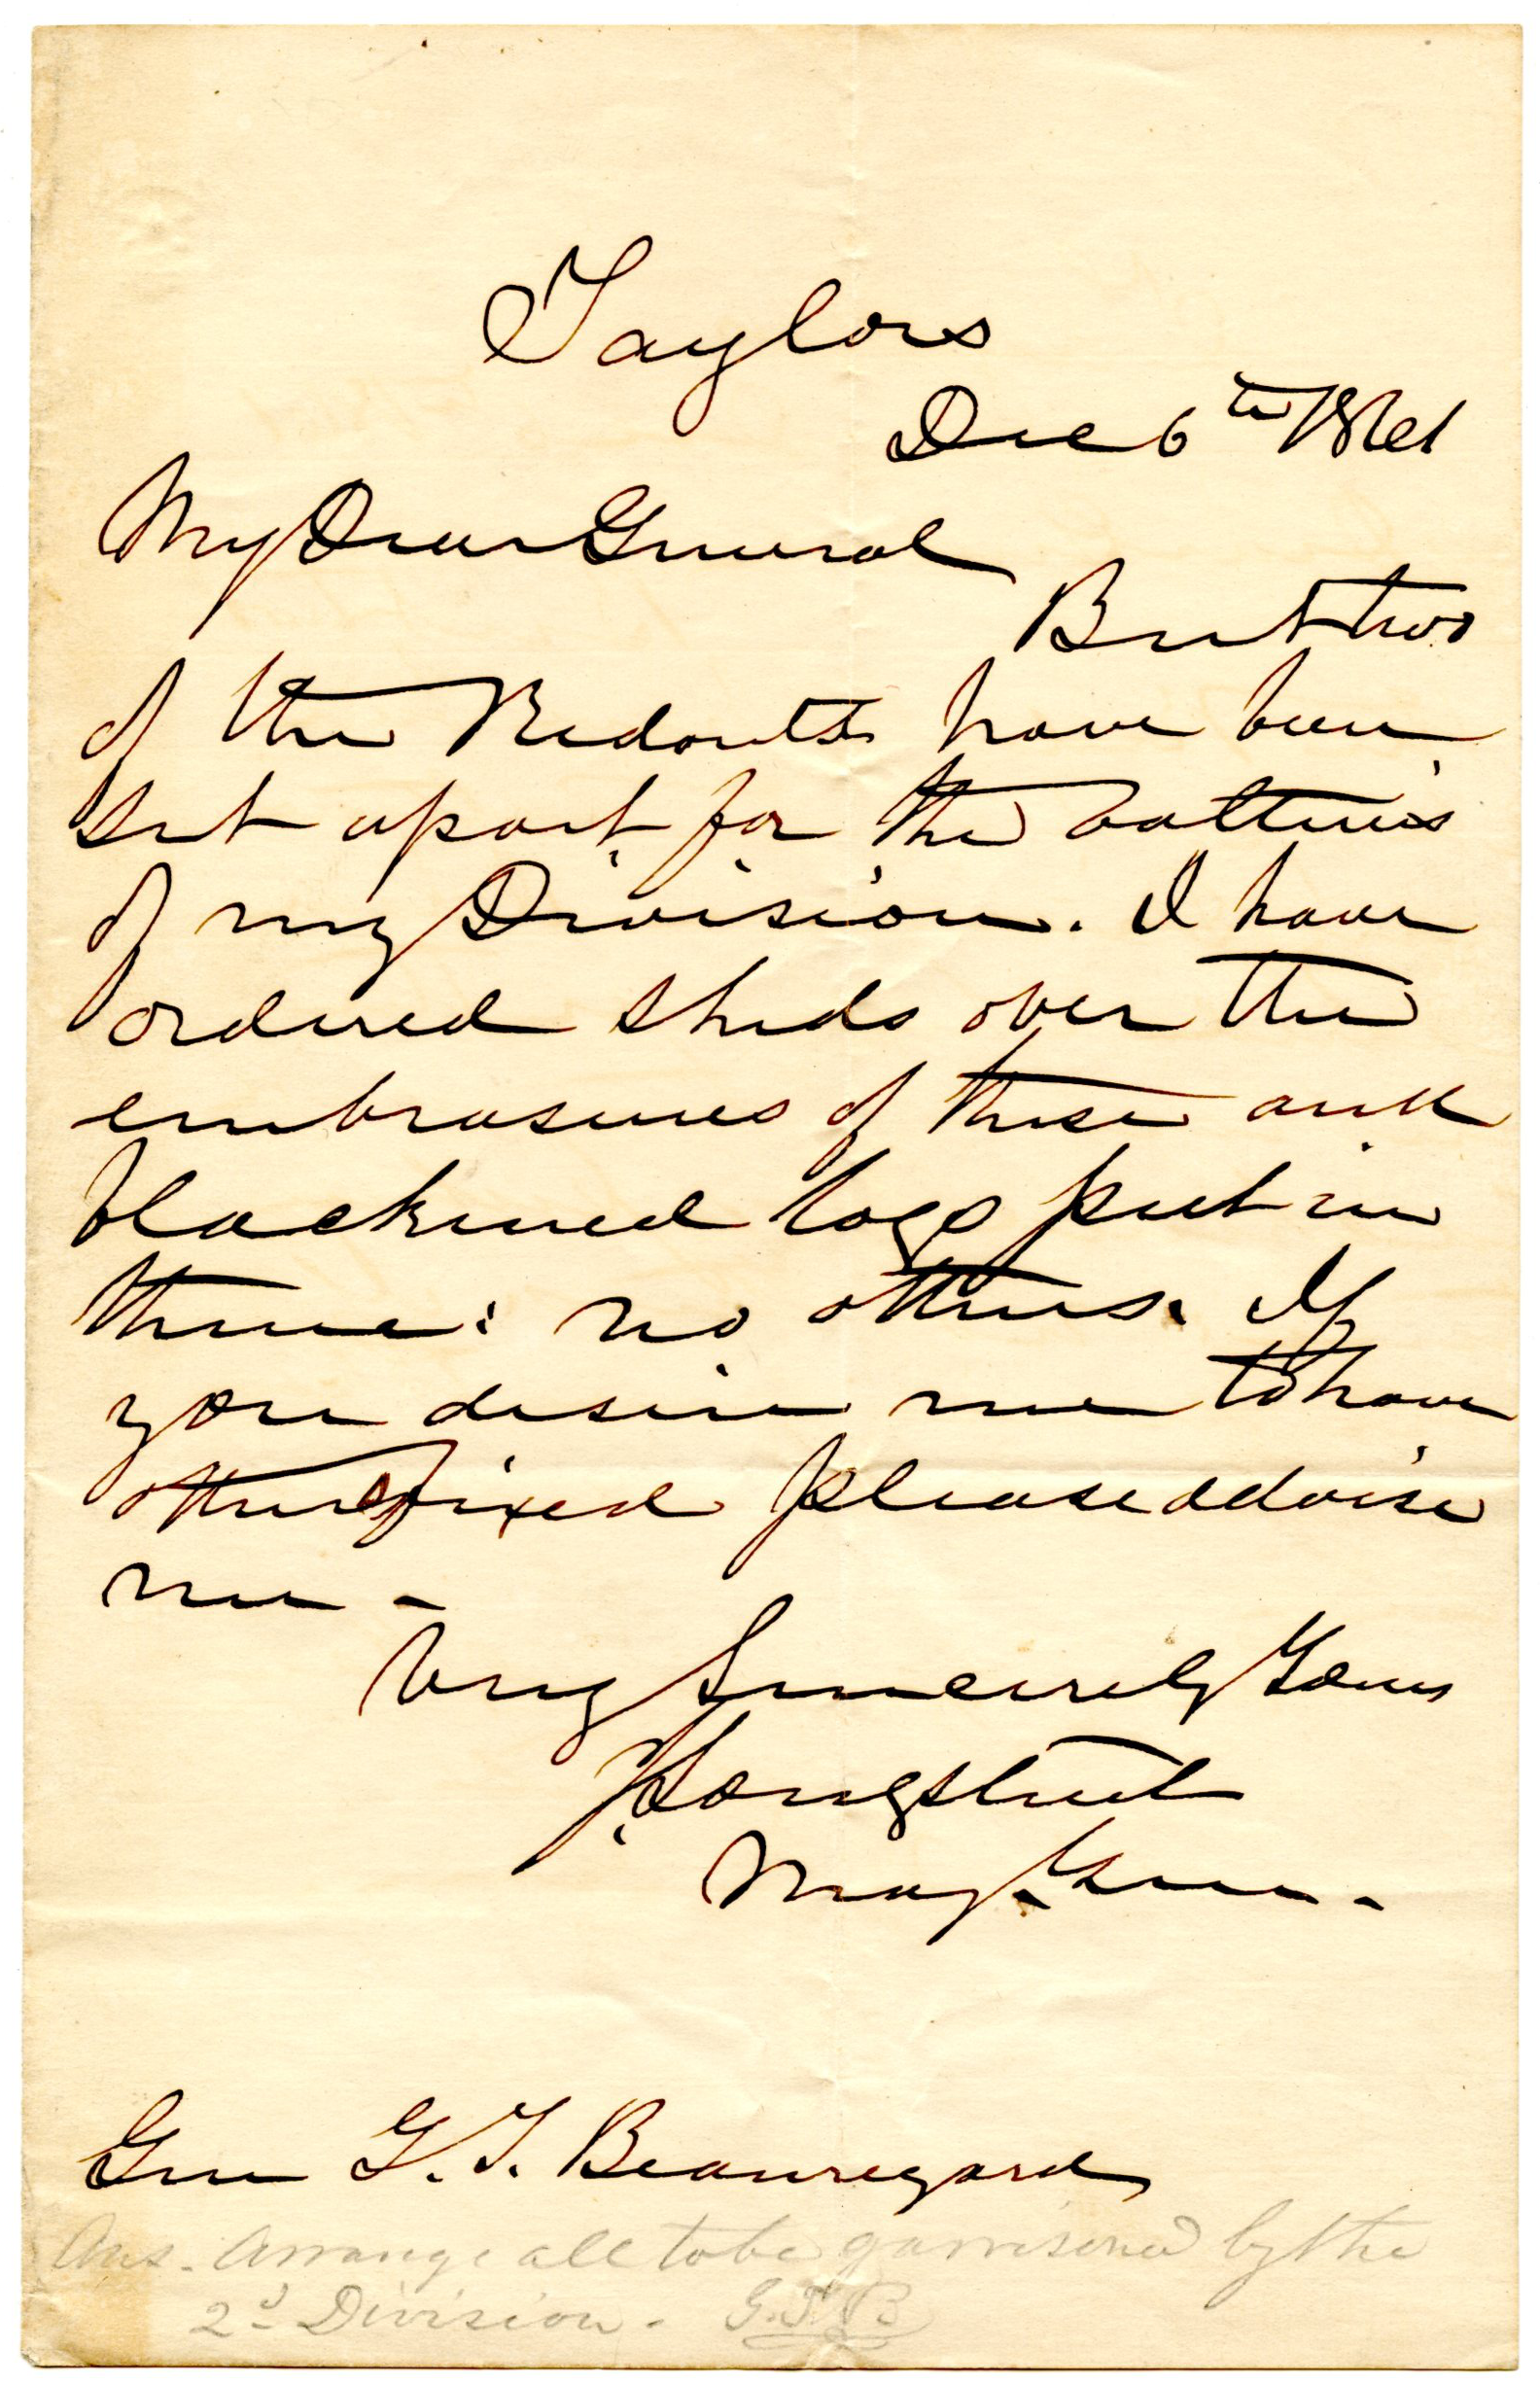 Taylors
Dec 6th 1861
My Dear General
But two
of the Redouts have been
set apart for the batteries
of my Division. I have
ordered sheds over the
embrasures of these and
blackened logs put in
them: no others. If
you desire me to have
others fixed please advise
me -
Very Sincerely Yours
J Longstreet
Maj. Gen.
Gen G. T. Beauregard
Ans. Arrange all to be garrisoned by the
2d Division. G.T.B